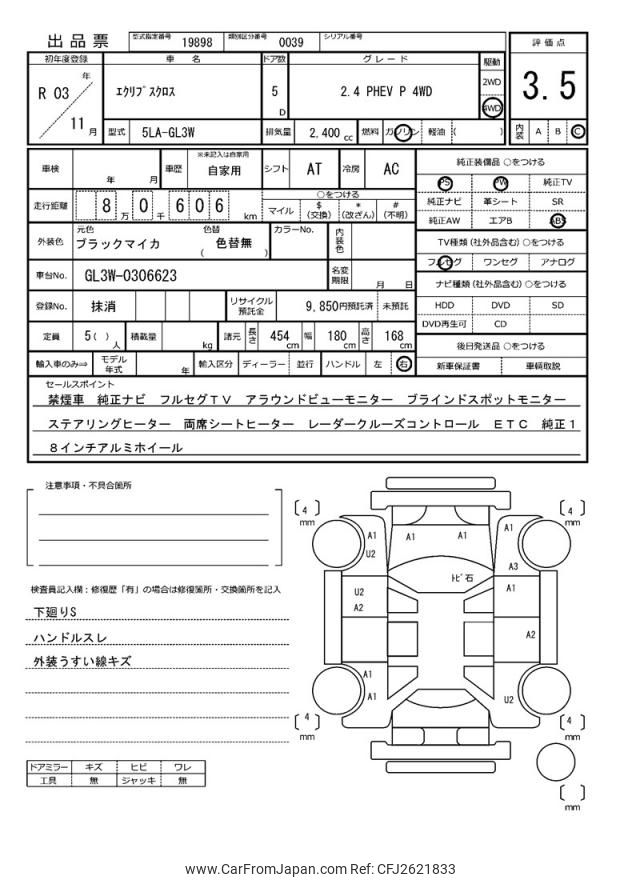 出品票 型式指定番号 19898 類別区分番号 0039 シリアル番号
評価点
3.5
内装 A B C
初年度登録 車名 ドア数 グレード 駆動
R 03 年 11 月
エクリプスクロス 5 D 2.4 PHEV P 4WD 2WD 4WD
型式 5LA-GL3W 排気量 2,400 cc 燃料 ガソリン 軽油 ( )
車検 年 月 車歴 ※未記入は自家用 自家用 シフト AT 冷房 AC
走行距離 8 万 0 千 6 0 6 km ○をつける
マイル $ (交換) * (改ざん) # (不明)
外装色 元色 ブラックマイカ 色替 ( 色替無 ) カラーNo. 内装色
車台No. GL3W-0306623 名変期限 月 日
登録No. 抹消 リサイクル預託金 9,850円預託済 未預託
定員 5( ) 人 積載量 kg 諸元 長さ 454 cm 幅 180 cm 高さ 168 cm
輸入車のみ⇒ モデル年式 年 輸入区分 ディーラー 並行 ハンドル 左 右
純正装備品 ○をつける
PS PW 純正TV
純正ナビ 革シート SR
純正AW エアB ABS
TV種類 (社外品含む) ○をつける
フルセグ ワンセグ アナログ
ナビ種類 (社外品含む) ○をつける
HDD DVD SD
DVD再生可 CD
後日発送品 ○をつける
新車保証書 車輌取説
セールスポイント
禁煙車 純正ナビ フルセグTV アラウンドビューモニター ブラインドスポットモニター
ステアリングヒーター 両席シートヒーター レーダークルーズコントロール ETC 純正1
8インチアルミホイール
注意事項・不具合箇所
検査員記入欄：修復歴「有」の場合は修復箇所・交換箇所を記入
下廻りS
ハンドルスレ
外装うすい線キズ
ドアミラー キズ ヒビ ワレ
工具 無 ジャッキ 無
[ 4 ] mm
[ 4 ] mm
A1 A1 A1 A1
U2
トビ石 A3
U2 A1
A2
A2
A1
A1 U2
[ 4 ] mm
[ 4 ] mm
[ ] mm
www.CarFromJapan.com Ref: CFJ2621833